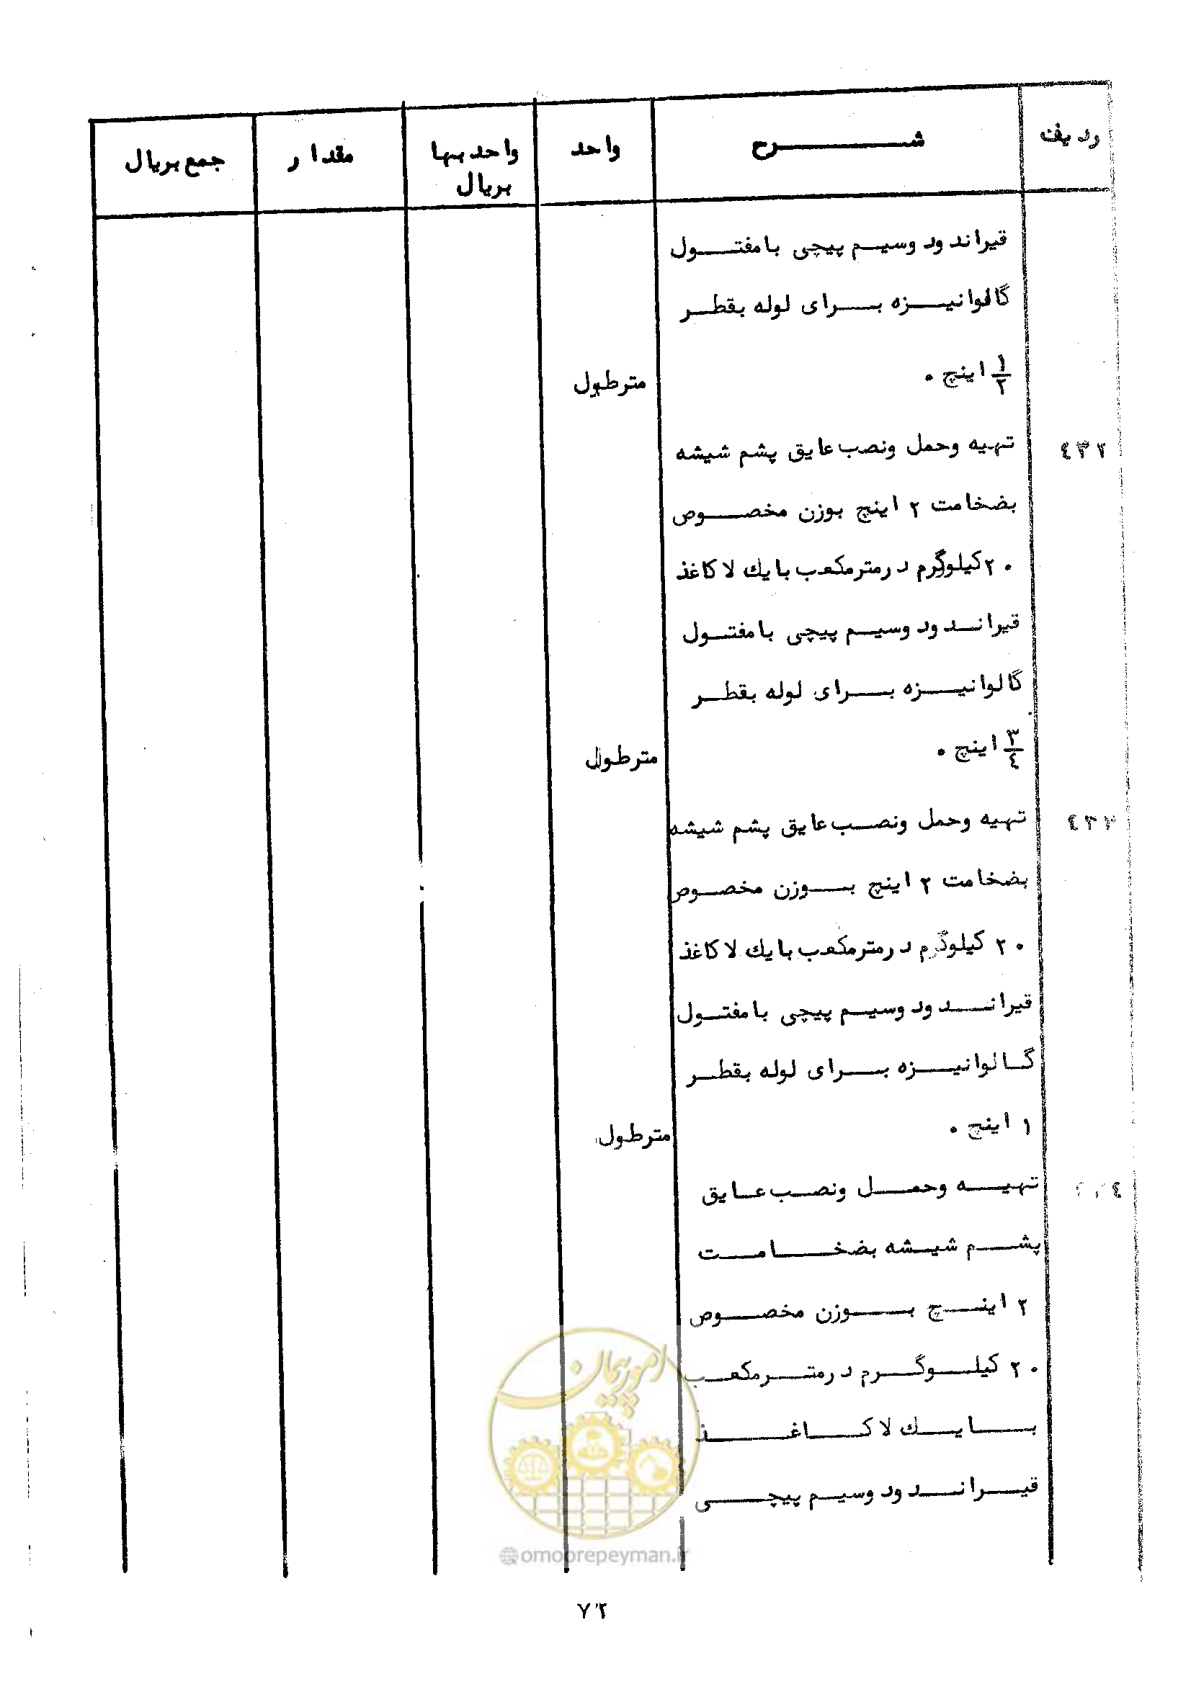 ردیف شرح واحد واحد بها بریال مقدار جمع بریال
قیراندود وسیم پیچی با مفتول
گالوانیزه برای لوله بقطر
۱/۲ اینچ . مترطول
٤۳۲ تهیه وحمل ونصب عایق پشم شیشه
بضخامت ۲ اینچ بوزن مخصوص
۲۰ کیلوگرم در مترمکعب با یک لا کاغذ
قیراندود وسیم پیچی با مفتول
گالوانیزه برای لوله بقطر
۳/٤ اینچ . مترطول
٤۳۳ تهیه وحمل ونصب عایق پشم شیشه
بضخامت ۲ اینچ بوزن مخصوص
۲۰ کیلوگرم در مترمکعب با یک لا کاغذ
قیراندود وسیم پیچی با مفتول
گالوانیزه برای لوله بقطر
۱ اینچ . مترطول
تهیه وحمل ونصب عایق
پشم شیشه بضخامت
۲ اینچ بوزن مخصوص
۲۰ کیلوگرم در مترمکعب
با یک لا کاغذ
قیراندود وسیم پیچی
امور پیمان
@omoorepeyman.ir
۷۲